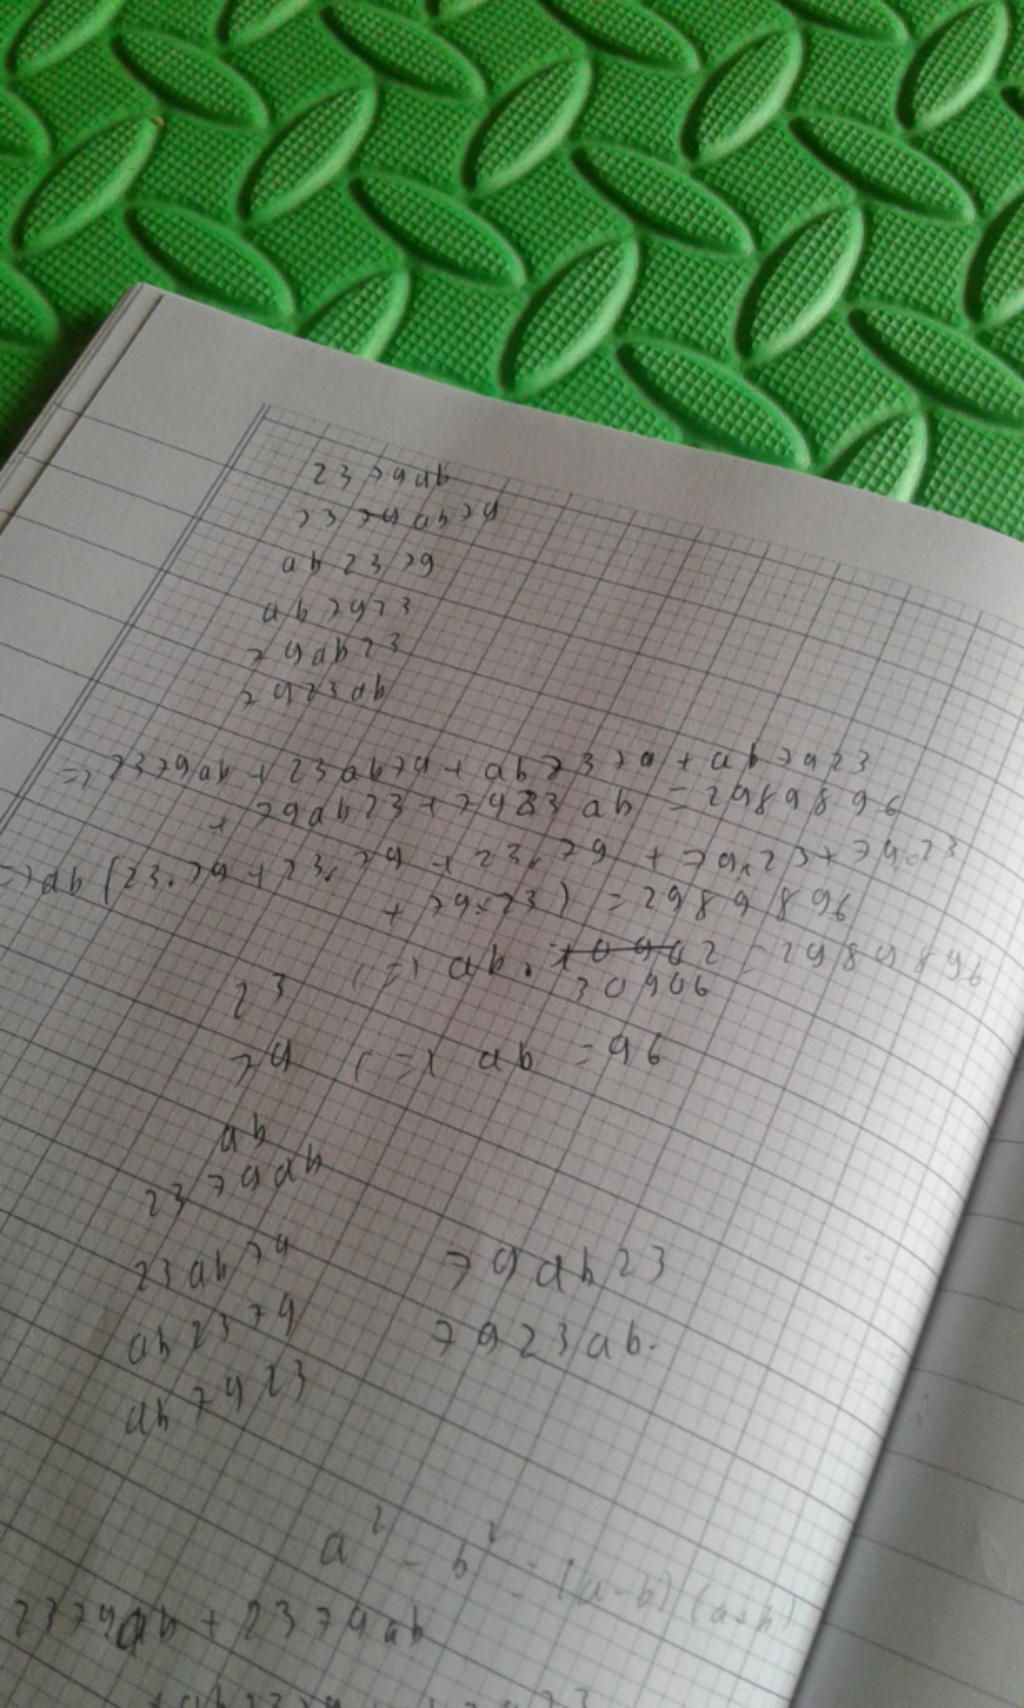 2379ab
2379ab79
ab2379
ab7923
79ab23
7923ab
=> 2379ab + 23ab79 + ab2379 + ab7923
+ 79ab23 + 7923ab = 2989896
=> ab (23.79 + 23.79 + 23.79 + 79.23 + 79.23
+ 79.23) = 2989896
(=) ab. 10902 = 2989896
30906
23
79 (=) ab = 96
ab
2379ab
23ab79
79ab23
ab2379
7923ab.
ab7923
a² - b² = (a-b)(a+b)
2379ab + 2379ab